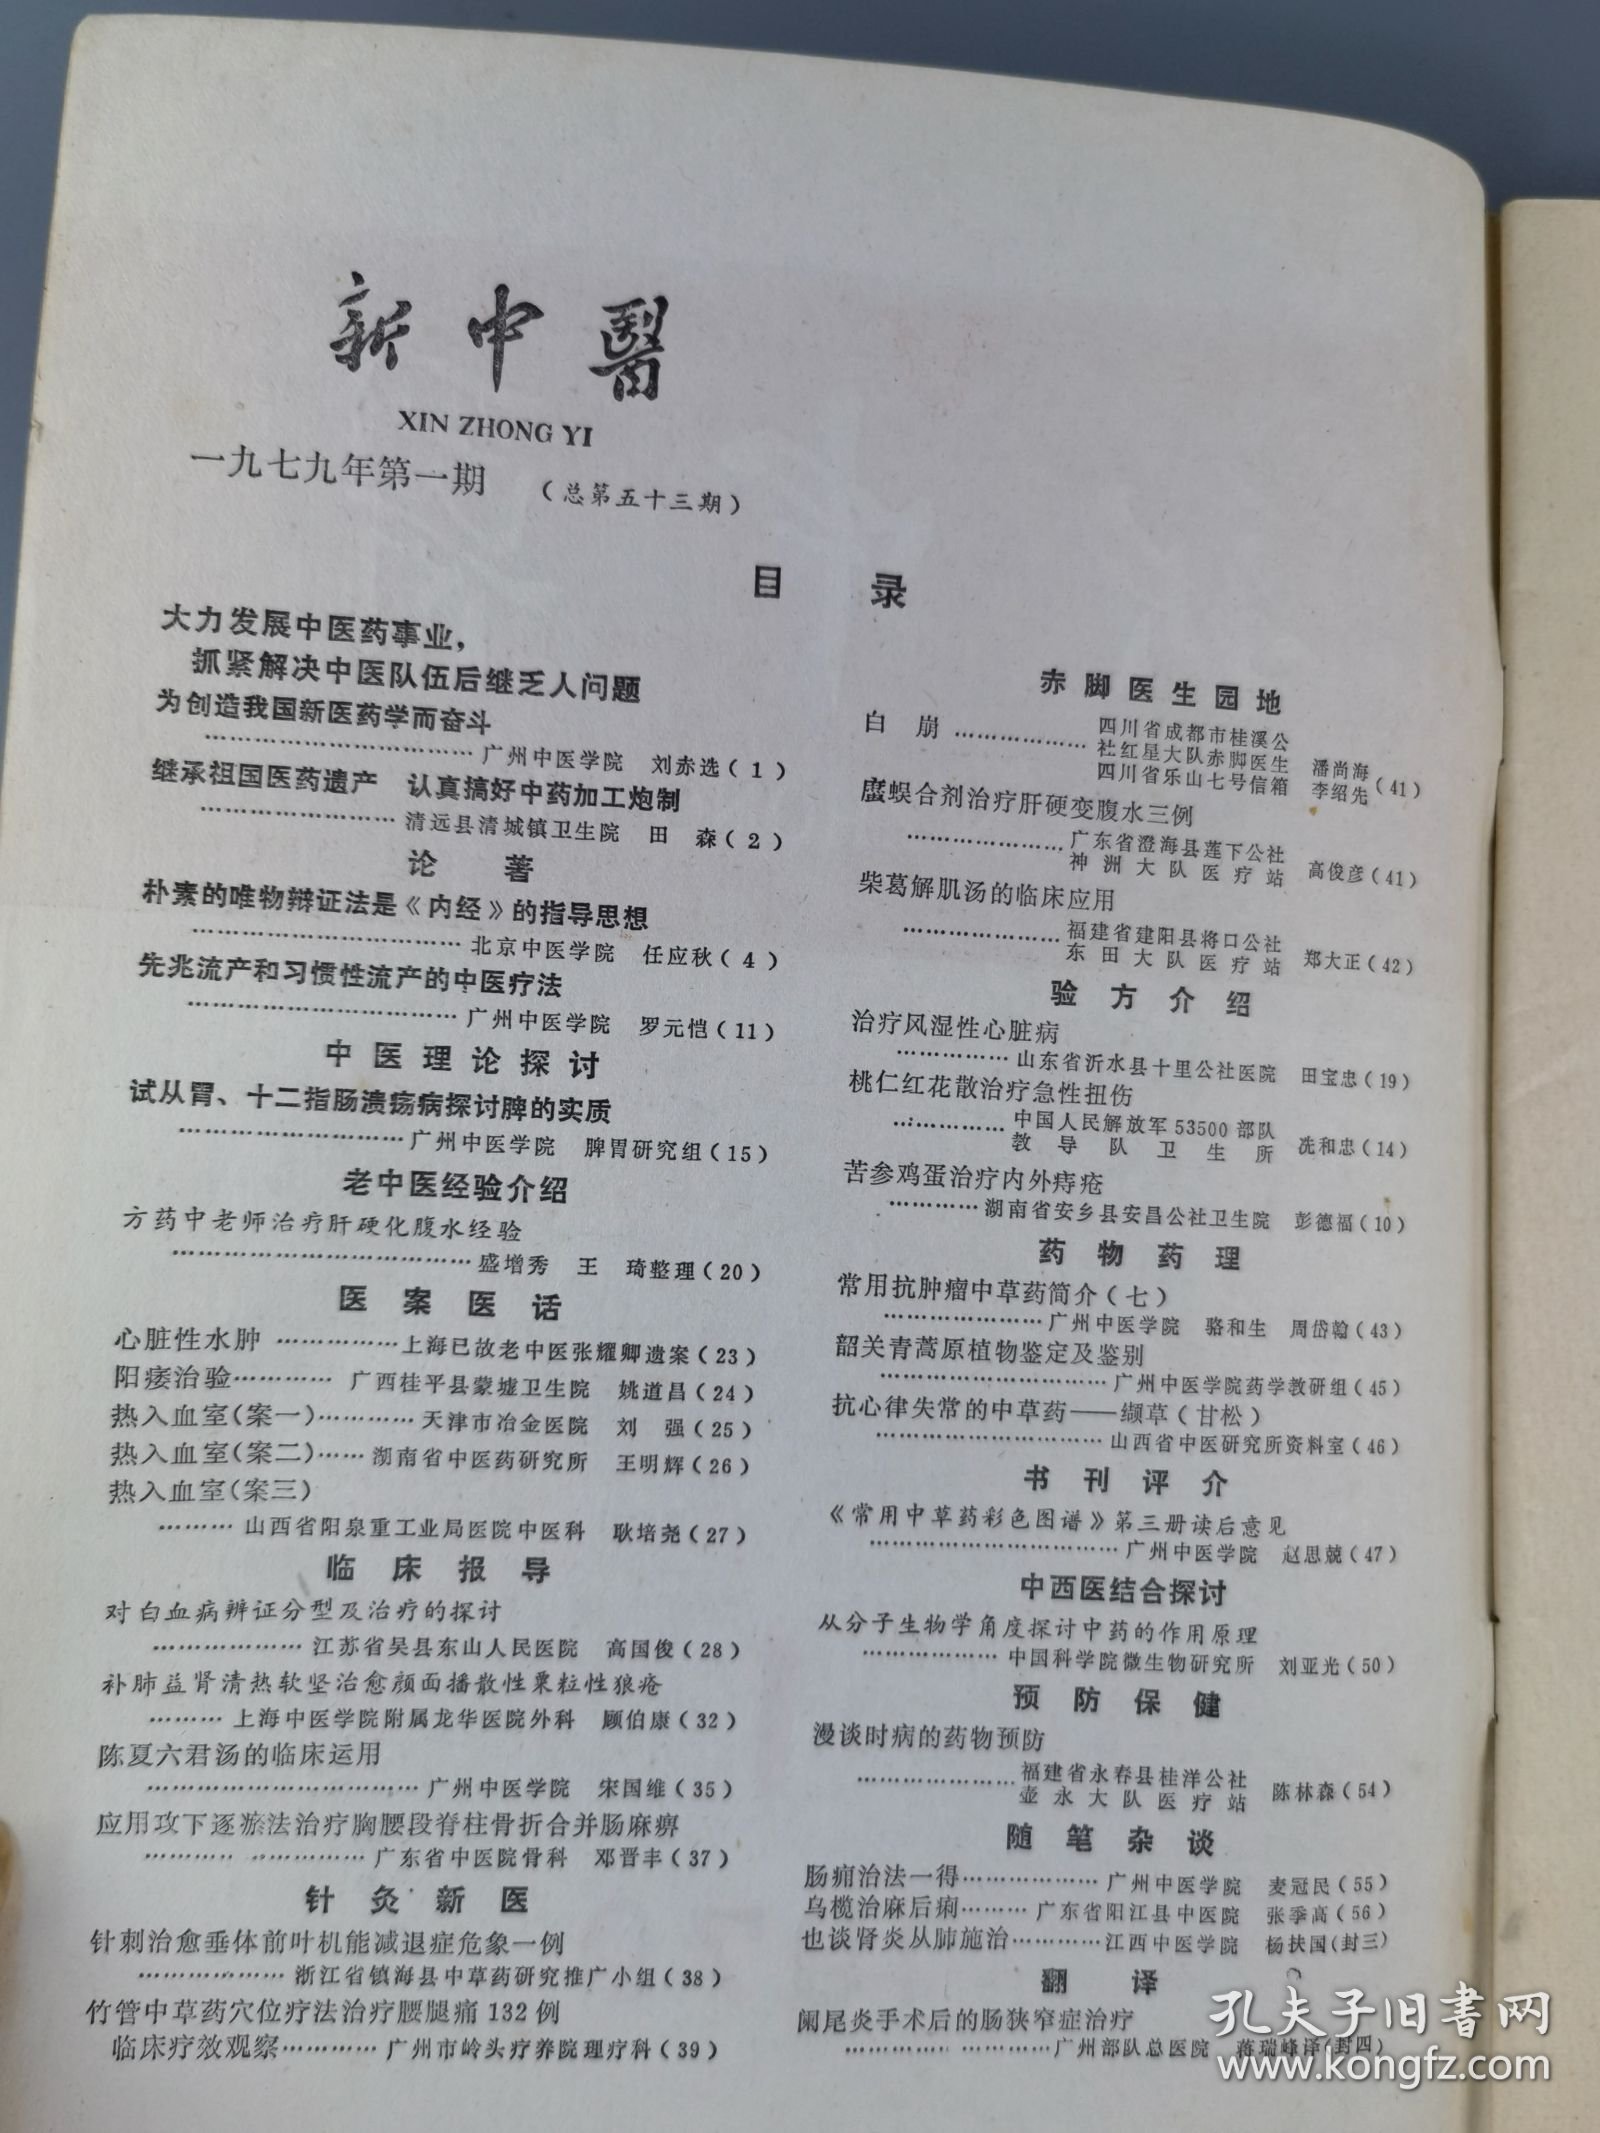 新中醫
XIN ZHONG YI
一九七九年第一期 （总第五十三期）
目 录
大力发展中医药事业，
抓紧解决中医队伍后继乏人问题
为创造我国新医药学而奋斗
………………………… 广州中医学院 刘赤选（1）
继承祖国医药遗产 认真搞好中药加工炮制
………………………… 清远县清城镇卫生院 田 森（2）
论 著
朴素的唯物辩证法是《内经》的指导思想
………………………… 北京中医学院 任应秋（4）
先兆流产和习惯性流产的中医疗法
………………………… 广州中医学院 罗元恺（11）
中医理论探讨
试从胃、十二指肠溃疡病探讨脾的实质
………………………… 广州中医学院 脾胃研究组（15）
老中医经验介绍
方药中老师治疗肝硬化腹水经验
………………………… 盛增秀 王 琦整理（20）
医案医话
心脏性水肿 ……………上海已故老中医张耀卿遗案（23）
阳痿治验………… 广西桂平县蒙墟卫生院 姚道昌（24）
热入血室（案一）………… 天津市冶金医院 刘 强（25）
热入血室（案二）…… 湖南省中医药研究所 王明辉（26）
热入血室（案三）
……… 山西省阳泉重工业局医院中医科 耿培尧（27）
临床报导
对白血病辨证分型及治疗的探讨
……………… 江苏省吴县东山人民医院 高国俊（28）
补肺益肾清热软坚治愈颜面播散性粟粒性狼疮
……… 上海中医学院附属龙华医院外科 顾伯康（32）
陈夏六君汤的临床运用
………………………… 广州中医学院 宋国维（35）
应用攻下逐瘀法治疗胸腰段脊柱骨折合并肠麻痹
………… ………… 广东省中医院骨科 邓晋丰（37）
针灸新医
针刺治愈垂体前叶机能减退症危象一例
……………… 浙江省镇海县中草药研究推广小组（38）
竹管中草药穴位疗法治疗腰腿痛132例
临床疗效观察………… 广州市岭头疗养院理疗科（39）
赤脚医生园地
白 崩 ……………… 四川省成都市桂溪公
社红星大队赤脚医生 潘尚海
四川省乐山七号信箱 李绍先（41）
䗪蜈合剂治疗肝硬变腹水三例
……………… 广东省澄海县莲下公社
神洲大队医疗站 高俊彦（41）
柴葛解肌汤的临床应用
……………… 福建省建阳县将口公社
东田大队医疗站 郑大正（42）
验方介绍
治疗风湿性心脏病
………… 山东省沂水县十里公社医院 田宝忠（19）
桃仁红花散治疗急性扭伤
………… 中国人民解放军53500部队
教导队卫生所 冼和忠（14）
苦参鸡蛋治疗内外痔疮
………… 湖南省安乡县安昌公社卫生院 彭德福（10）
药物药理
常用抗肿瘤中草药简介（七）
……………… 广州中医学院 骆和生 周岱翰（43）
韶关青蒿原植物鉴定及鉴别
………………………… 广州中医学院药学教研组（45）
抗心律失常的中草药——缬草（甘松）
………………………… 山西省中医研究所资料室（46）
书刊评介
《常用中草药彩色图谱》第三册读后意见
………………………… 广州中医学院 赵思兢（47）
中西医结合探讨
从分子生物学角度探讨中药的作用原理
……………… 中国科学院微生物研究所 刘亚光（50）
预防保健
漫谈时病的药物预防
……………… 福建省永春县桂洋公社
壶永大队医疗站 陈林森（54）
随笔杂谈
肠痈治法一得……………… 广州中医学院 麦冠民（55）
乌榄治麻后痢……… 广东省阳江县中医院 张季高（56）
也谈肾炎从肺施治………… 江西中医学院 杨扶国（封三）
翻 译
阑尾炎手术后的肠狭窄症治疗
………… …………广州部队总医院 蒋瑞峰译（封四）
孔夫子旧书网
www.kongfz.com